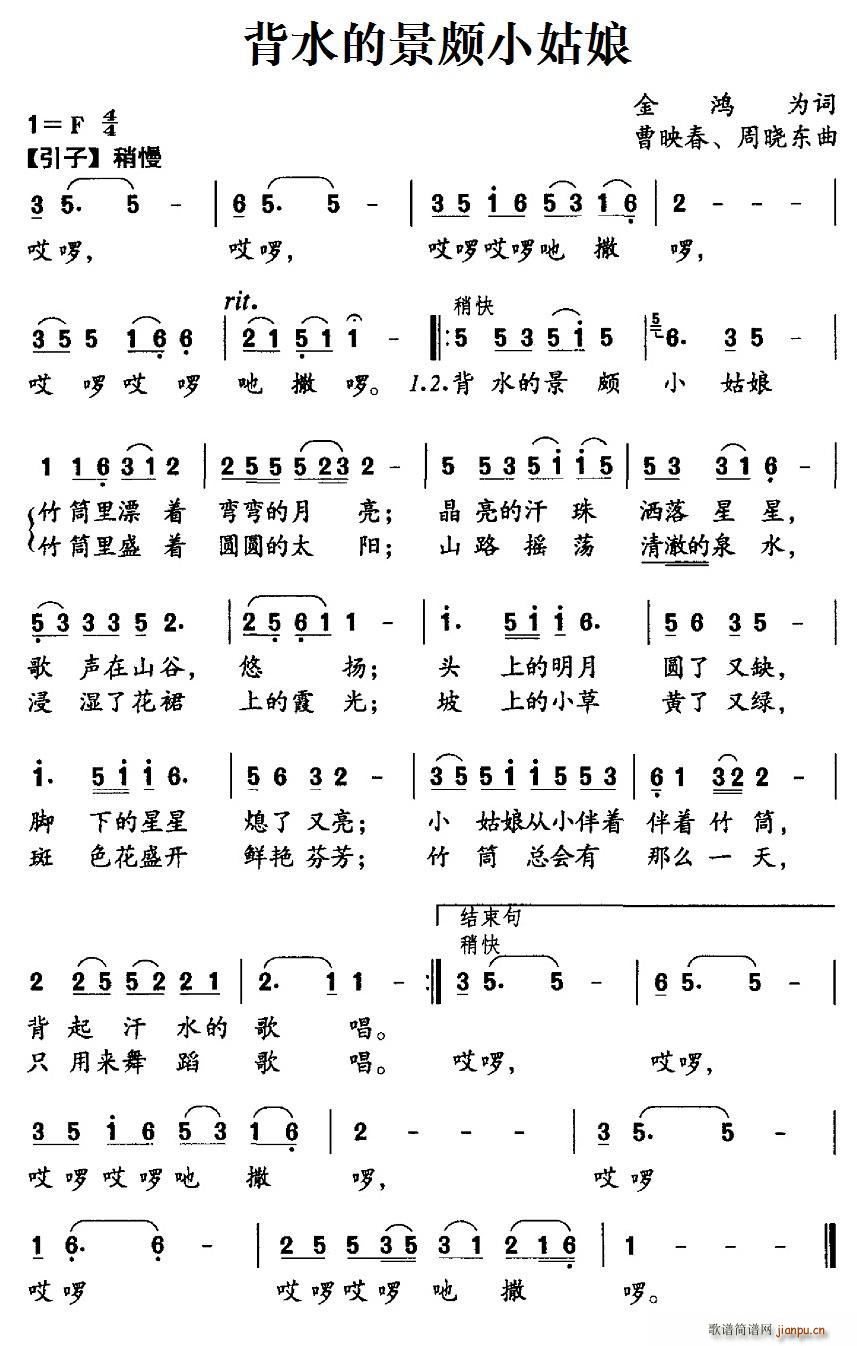 背水的景颇小姑娘
1=F 4/4
金鸿为词
曹映春、周晓东曲
【引子】稍慢
3 5. 5 - | 6 5. 5 - | 3 5 i 6 5 3 1 6 | 2 - - - |
哎啰， 哎啰， 哎啰哎啰吔撒啰，
rit. 稍快
3 5 5 1 6 6 | 2 1 5 1 1 - ‖: 5 5 3 5 i 5 | 5 6. 3 5 - |
哎啰哎啰吔撒啰。 1.2.背水的景颇小姑娘
1 1 6 3 1 2 | 2 5 5 5 2 3 2 - | 5 5 3 5 i i 5 | 5 3 3 1 6 - |
竹筒里漂着弯弯的月亮； 晶亮的汗珠洒落星星，
竹筒里盛着圆圆的太阳； 山路摇荡清澈的泉水，
5 3 3 3 5 2. | 2 5 6 1 1 - | i. 5 i i 6. | 5 6 3 5 - |
歌声在山谷，悠扬； 头上的明月圆了又缺，
浸湿了花裙上的霞光； 坡上的小草黄了又绿，
i. 5 i i 6. | 5 6 3 2 - | 3 5 5 i i 5 5 3 | 6 1 3 2 2 - |
脚下的星星熄了又亮； 小姑娘从小伴着伴着竹筒，
斑色花盛开鲜艳芬芳； 竹筒总会有那么一天，
结束句
稍快
2 2 5 5 2 2 1 | 2. 1 1 - :‖ 3 5. 5 - | 6 5. 5 - |
背起汗水的歌唱。
只用来舞蹈歌唱。 哎啰， 哎啰，
3 5 i 6 5 3 1 6 | 2 - - - | 3 5. 5 - |
哎啰哎啰吔撒啰， 哎啰
1 6. 6 - | 2 5 5 3 5 3 1 2 1 6 | 1 - - - ‖
哎啰 哎啰哎啰吔撒啰。
歌谱简谱网 jianpu.cn